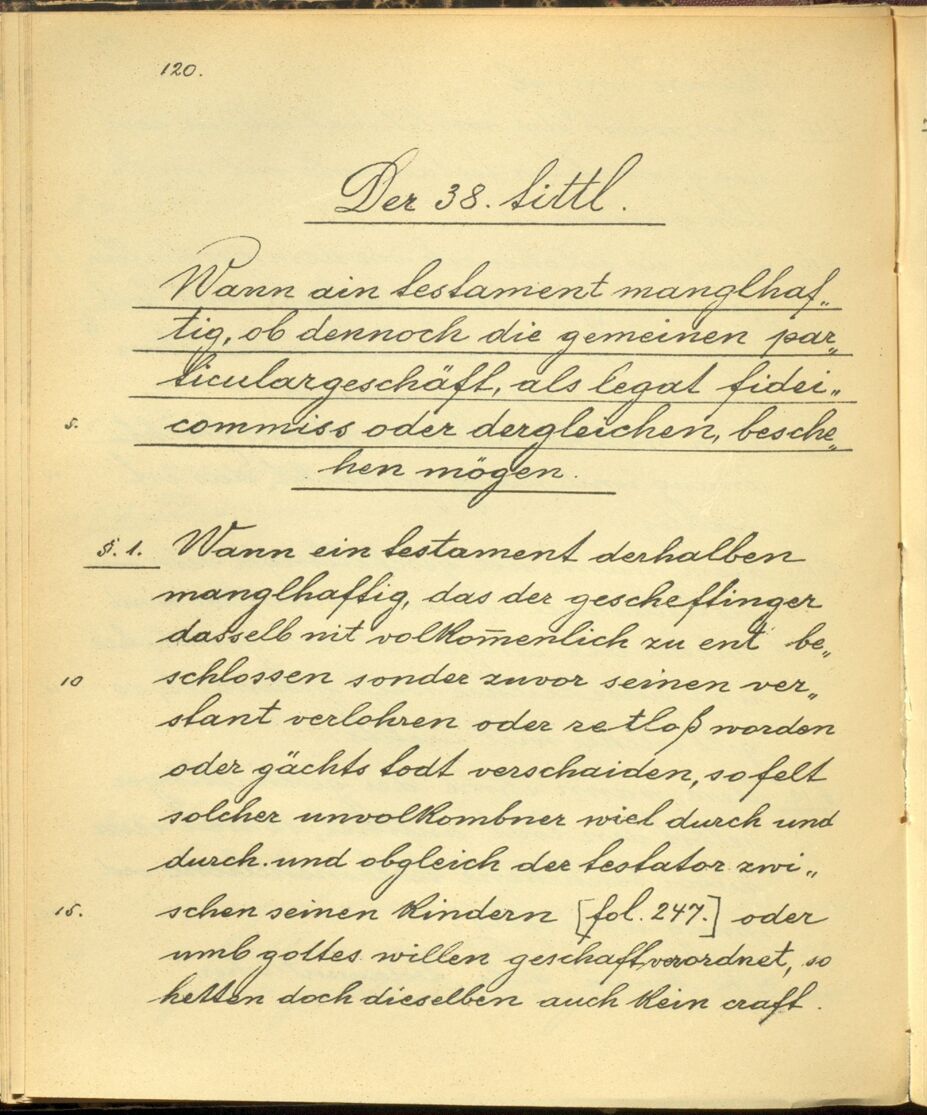 120.
Der 38. tittl.
Wann ain testament manglhaf„
tig, ob dennoch die gemeinen par„
ticulargeschäft, als legat fidei„
5. commiss oder dergleichen, besche„
hen mögen.
§. 1. Wann ein testament derhalben
manglhaftig, das der gescheftinger
dasselb nit volkom̄enlich zu ent be„
10 schlossen sonder zuvor seinen ver„
stant verlohren oder retloß worden
oder gächts todt verschaiden, so felt
solcher unvolkombner wiel durch und
durch. und obgleich der testator zwi„
15. schen seinen kindern [fol. 247.] oder
umb gottes willen geschaft verordnet, so
hetten doch dieselben auch kein craft.